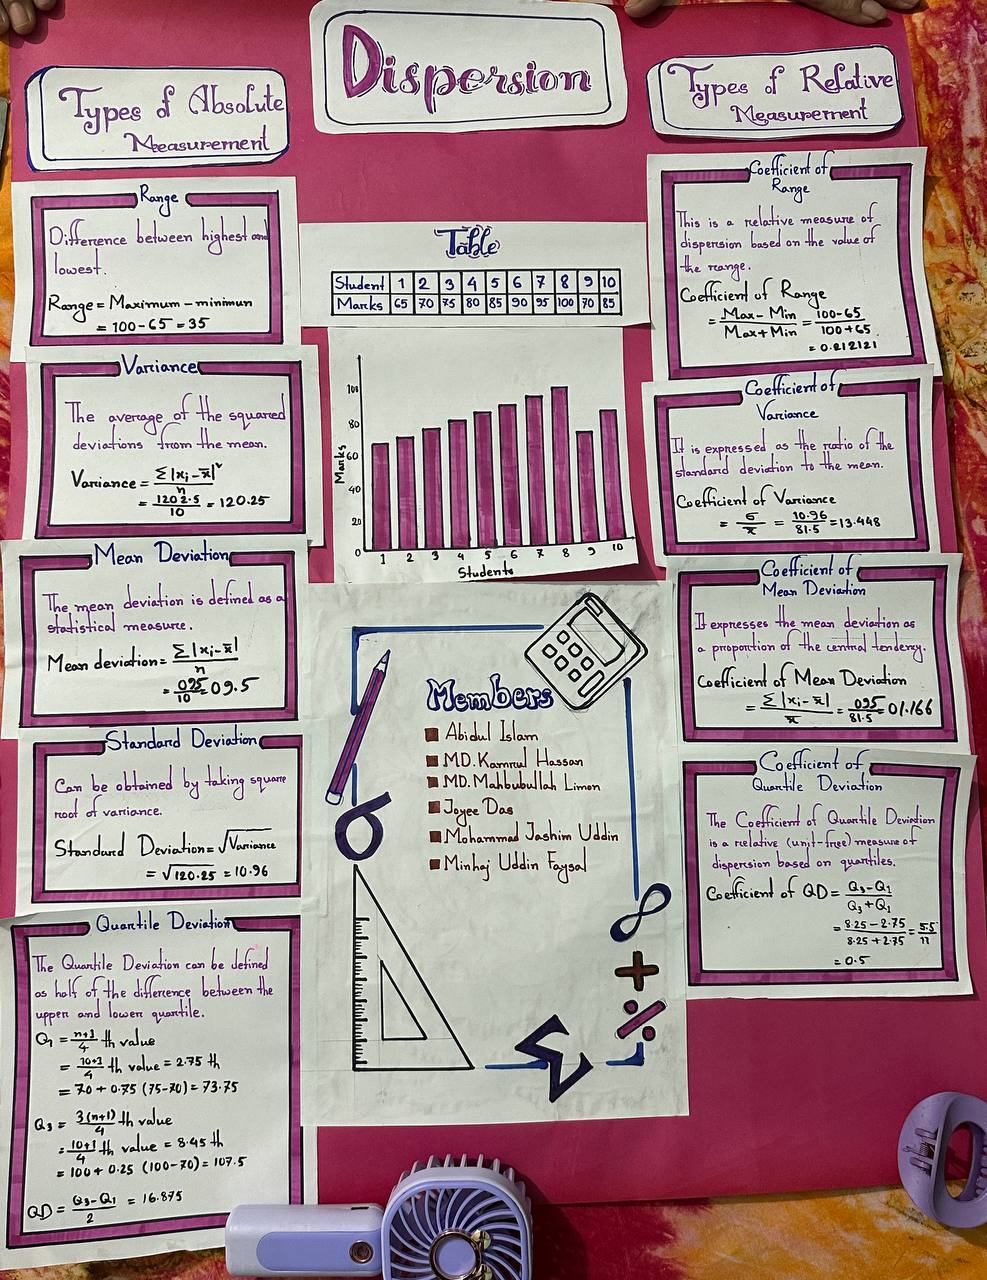 Dispersion
Types of Absolute
Measurement
Range
Difference between highest and
lowest.
Range = Maximum - minimun
= 100-65 = 35
Variance
The average of the squared
deviations from the mean.
Variance = Σ|xᵢ-x̄|²/n
= 1202.5/10 = 120.25
Mean Deviation
The mean deviation is defined as a
statistical measure.
Mean deviation = Σ|xᵢ-x̄|/n
= 095/10 = 09.5
Standard Deviation
Can be obtained by taking square
root of variance.
Standard Deviation = √Variance
= √120.25 = 10.96
Quartile Deviation
The Quartile Deviation can be defined
as half of the difference between the
upper and lower quartile.
Q₁ = n+1/4 th value
= 10+1/4 th value = 2.75 th
= 70 + 0.75 (75-70) = 73.75
Q₃ = 3(n+1)/4 th value
= 10+1/4 th value = 8.45 th
= 100 + 0.25 (100-70) = 107.5
QD = Q₃-Q₁/2 = 16.875
Table
Student 1 2 3 4 5 6 7 8 9 10
Marks 65 70 75 80 85 90 95 100 70 85
Marks
100
80
60
40
20
0
1 2 3 4 5 6 7 8 9 10
Students
Members
Abidul Islam
MD. Kamrul Hassan
MD. Mahbubullah Limon
Joyee Das
Mohammad Jashim Uddin
Minhaj Uddin Faysal
σ
∞
+
%
Σ
Types of Relative
Measurement
Coefficient of
Range
This is a relative measure of
dispersion based on the value of
the range.
Coefficient of Range
= Max-Min/Max+Min = 100-65/100+65
= 0.212121
Coefficient of
Variance
It is expressed as the ratio of the
standard deviation to the mean.
Coefficient of Variance
= σ/x̄ = 10.96/81.5 = 13.448
Coefficient of
Mean Deviation
It expresses the mean deviation as
a proportion of the central tendency.
Coefficient of Mean Deviation
= Σ|xᵢ-x̄|/x̄ = 095/81.5 = 01.166
Coefficient of
Quartile Deviation
The Coefficient of Quartile Deviation
is a relative (unit-free) measure of
dispersion based on quartiles.
Coefficient of QD = Q₃-Q₁/Q₃+Q₁
= 8.25-2.75/8.25+2.75 = 5.5/11
= 0.5